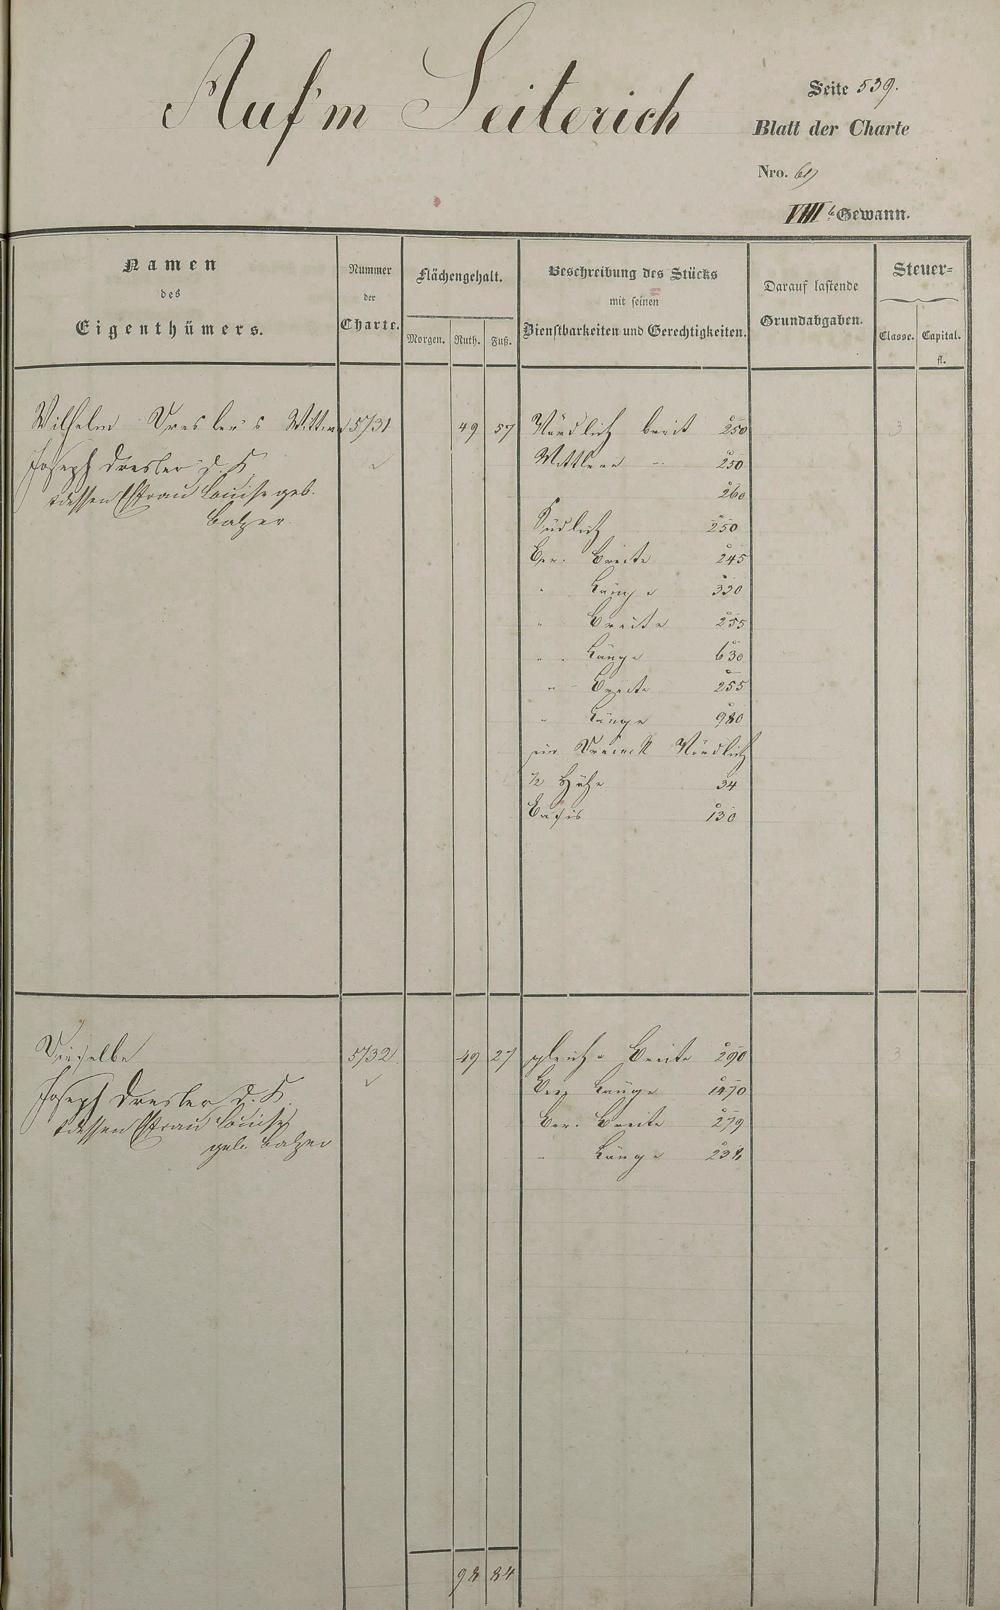 Auf'm Seiterich
Seite 539.
Blatt der Charte
Nro. 69
VIII te Gewann.
Namen
des
Eigenthümers.
Nummer
der
Charte.
Flächengehalt.
Morgen. Ruth. Fuß.
Beschreibung des Stücks
mit seinen
Dienstbarkeiten und Gerechtigkeiten.
Darauf lastende
Grundabgaben.
Steuer=
Classe. Capital.
fl.
Wilhelm Dresler's Wittwe 5731 49 57 Nördlich breit 250 3
Joseph Dresler d. K. Mittlere " 250
& dessen Efrau Louise geb. 260
Balzer Südlich 250
Ber. Breite 245
" Länge 330
" Breite 255
" " Länge 630
" Breite 255
" Länge 980
ein Dreieck Nördlich
½ Höhe 34
Basis 130
Dieselbe 5732 49 27 gleiche Breite 290 3
Joseph Dresler d. K. Ber. Länge 1470
& dessen Efrau Louise Ber. Breite 279
geb. Balzer " Länge 238
98 84